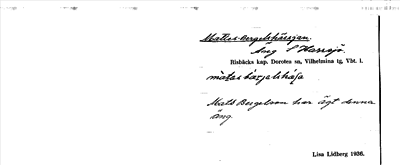 Matles-bergelshässjan.
Äng S Harrsjö.
Risbäcks kap. Dorotea sn, Vilhelmina tg, Vbt. l.
Mats Bergelson har ägt denna
äng.
Lisa Lidberg 1936.